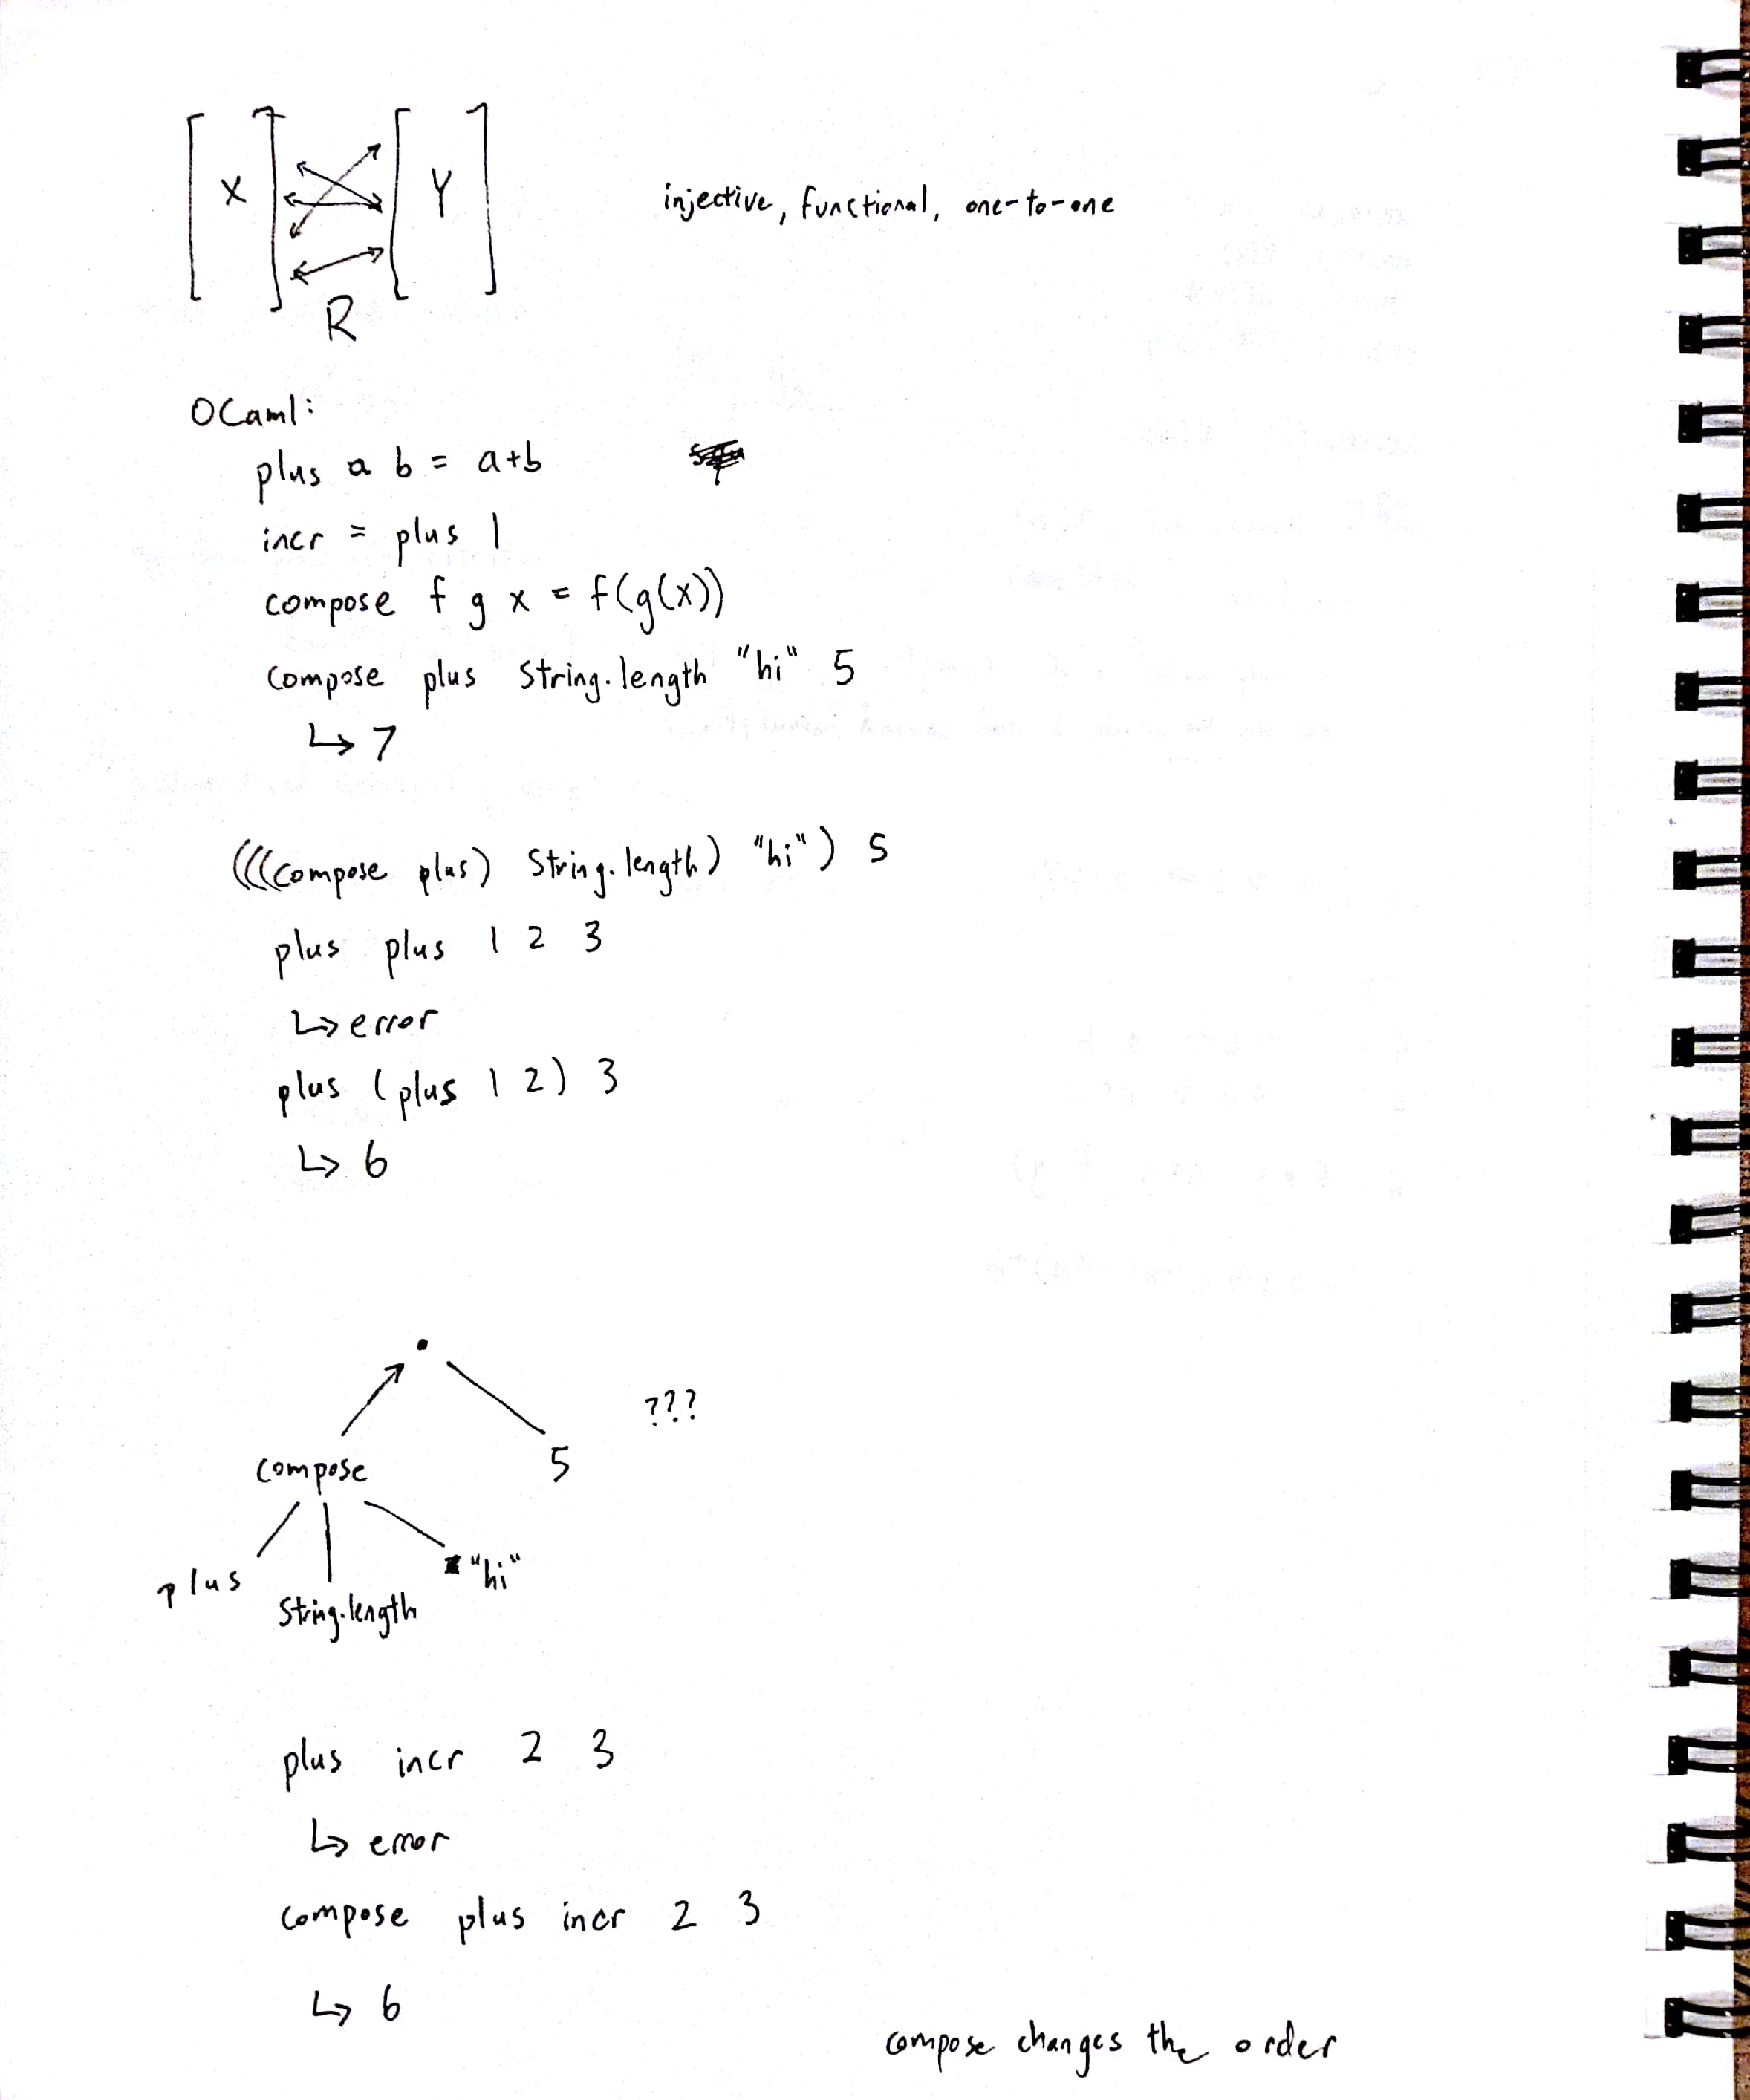 X Y
injective, functional, one-to-one
R
OCaml:
plus a b = a+b
incr = plus 1
compose f g x = f(g(x))
compose plus String.length "hi" 5
↳ 7
(((compose plus) String.length) "hi") 5
plus plus 1 2 3
↳ error
plus (plus 1 2) 3
↳ 6
???
compose 5
plus String.length "hi"
plus incr 2 3
↳ error
compose plus incr 2 3
↳ 6
compose changes the order